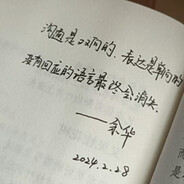 沟通是双向的，表达是朝向的
没有回应的语言最终会消失。
——余华
2024.2.28
而
是